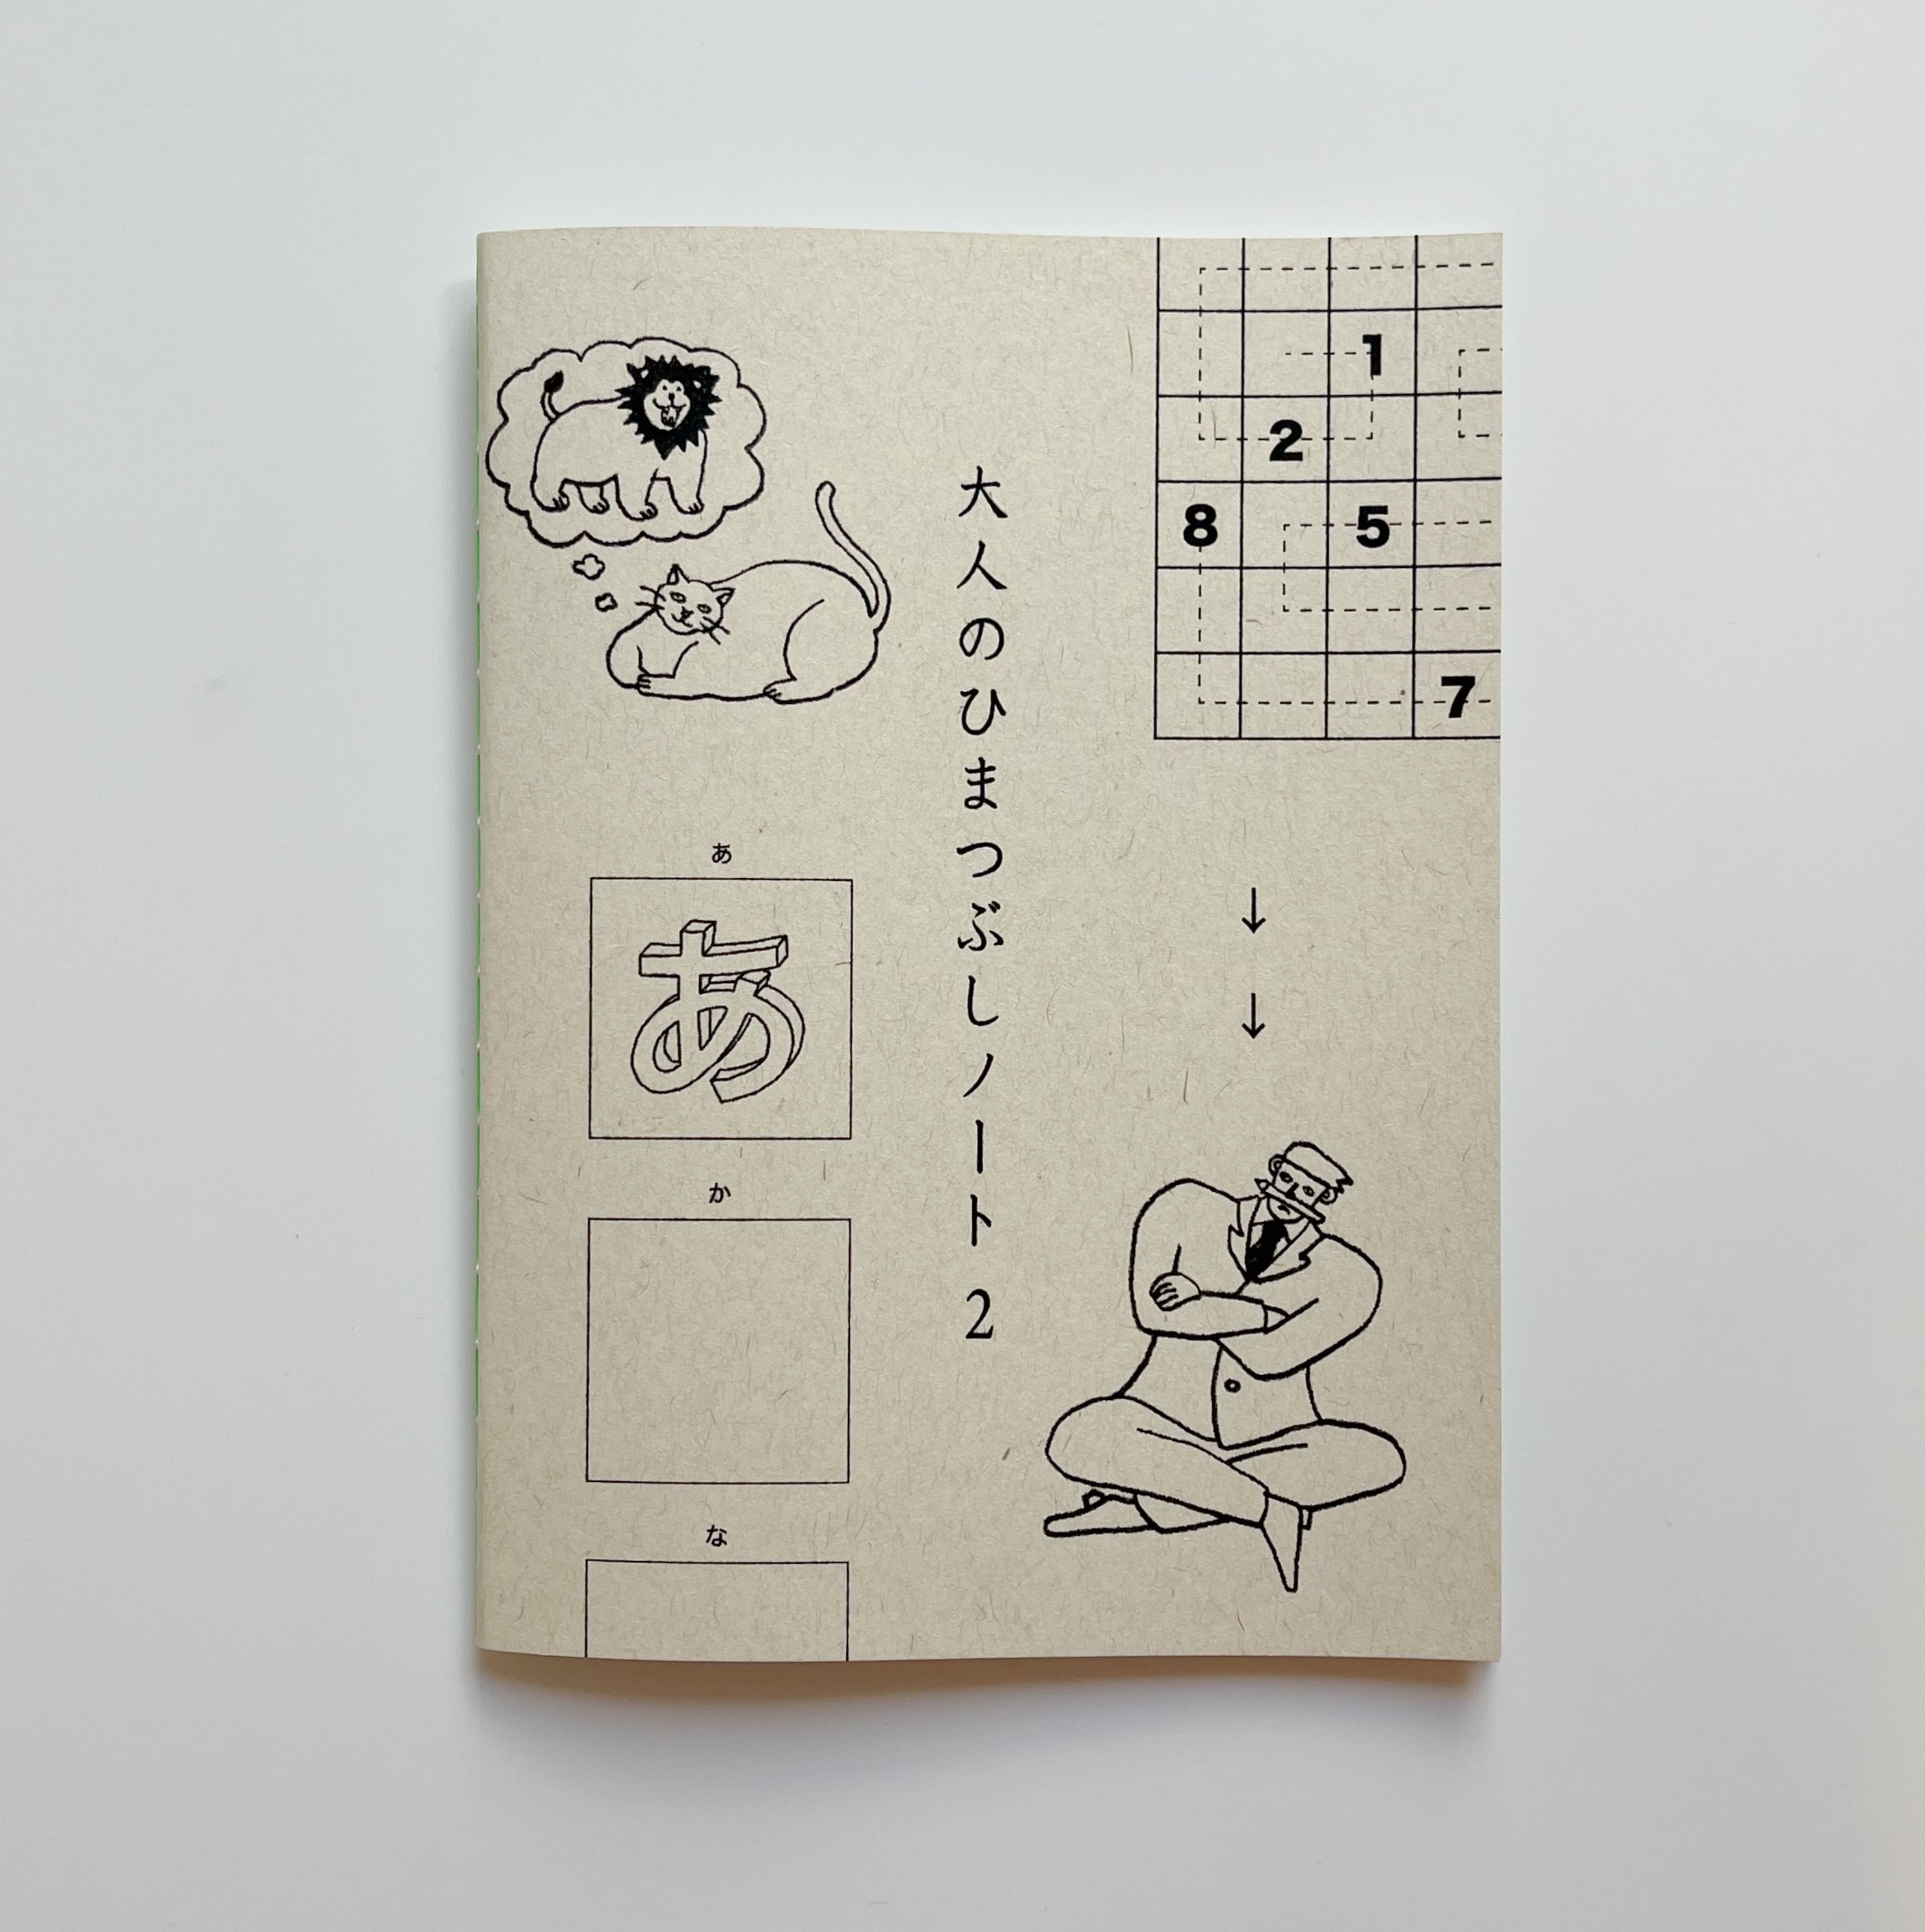 大人のひまつぶしノート2
1
2
8 5
7
↓
↓
あ
あ
か
な